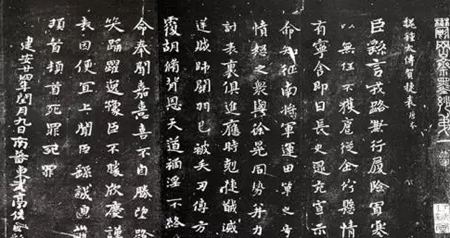 魏鍾太傅賀捷表
臣繇言戎路兼行履險冒寒
以無任不獲扈從企佇懸情
有寧舍即日長史逮充宣示
命知征南將軍運田單之奇
憤怒之衆與徐晃同勢并力
討表裏俱進應時剋捷馘滅
逆賊帥關羽已被矢刃傅方
覆胡脩背恩天道禍淫不終
命奉聞嘉憙喜不自勝望路
笑踊躍逸豫臣不勝欣慶謹
表因便宜上聞臣繇誠皇
頓首頓首死罪死罪
建安廿四年閏月九日南蕃東武亭侯臣繇